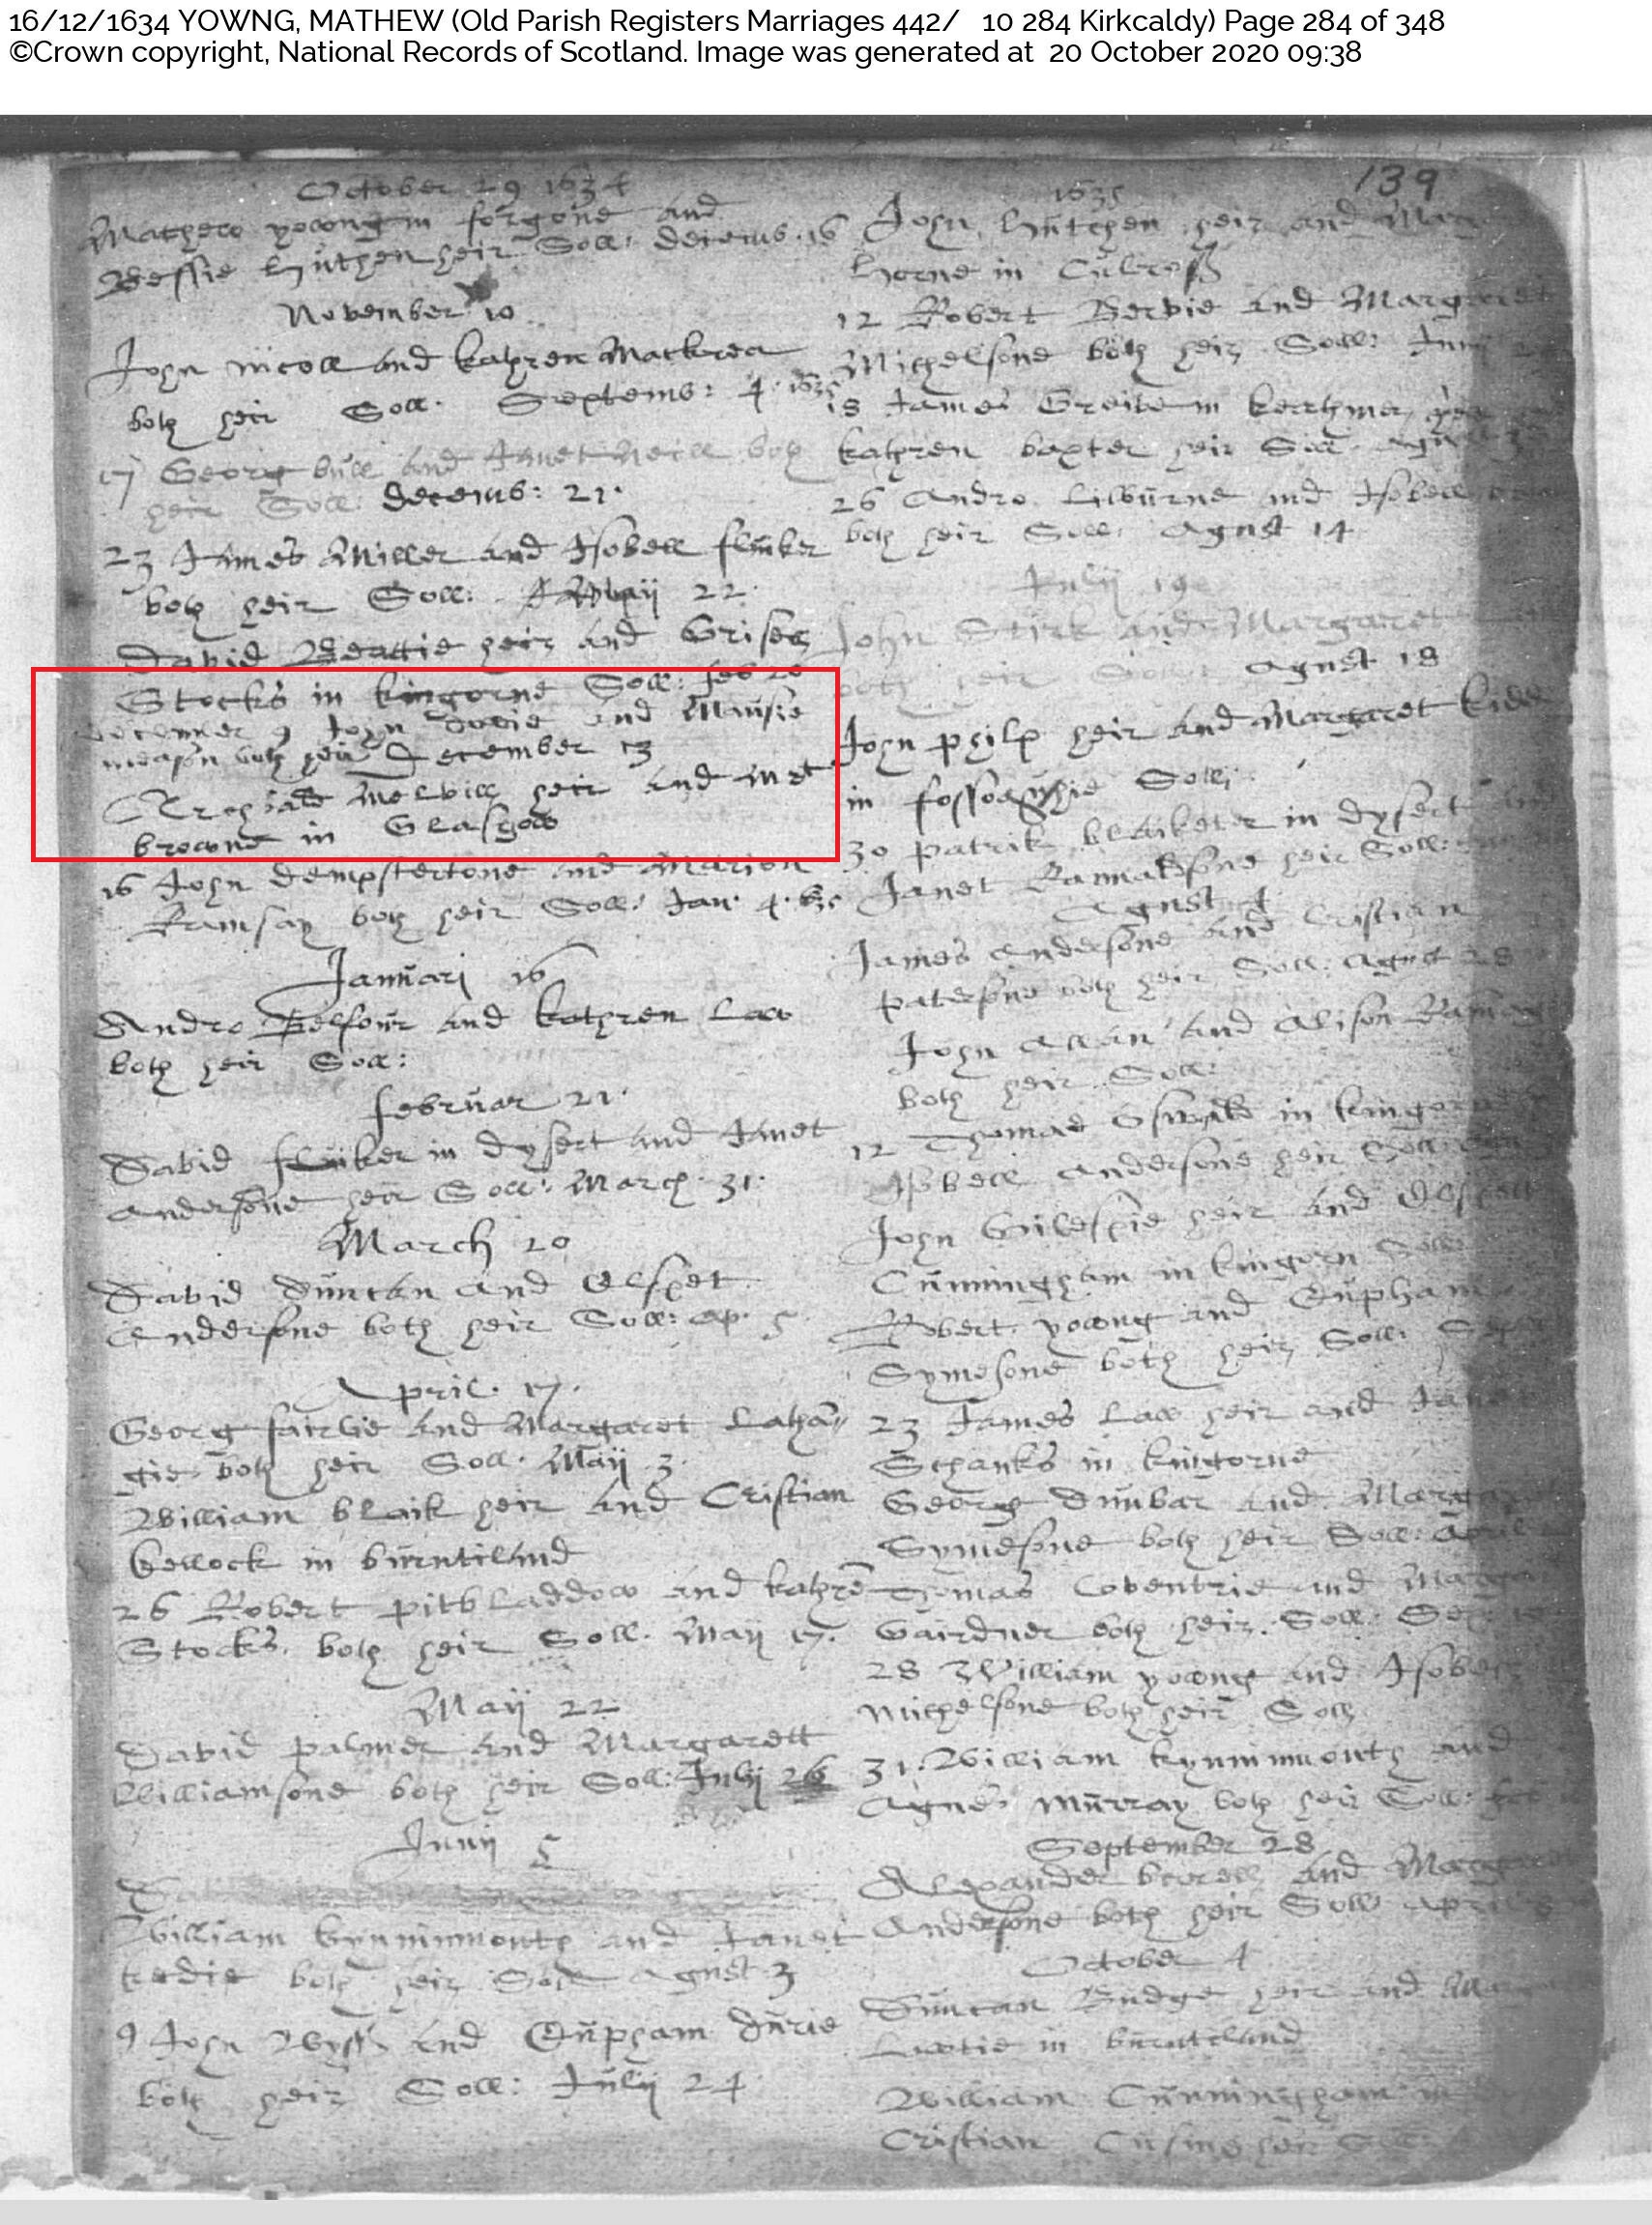 16/12/1634 YOWNG, MATHEW (Old Parish Registers Marriages 442/ 10 284 Kirkcaldy) Page 284 of 348
©Crown copyright, National Records of Scotland. Image was generated at 20 October 2020 09:38
139
October 29 1634
Mathew yowng in forgone and
Bessie Hutchen heir Soll: decemb. 16
November 10
John nicoll and kathren Mackrea
both heir Soll. Septemb: 4. 1635
17 Georg bull and Janet Neill both
heir Soll: decemb: 21.
23 James Miller and Isobell fluker
both heir Soll: 22.
David Beattie heir and Grisell
Stocks in kingorne Soll: feb 20
december 9 John and Mausie
measn both heir December 13
Archbald Melvill heir and Mct
browne in Glasgow
16 John dempstertone and Marion
Ramsay both heir Soll: Jan. 4. 1635
Januari 16
Andro Belfour and kathren Law
both heir Soll:
februar 21.
David fluker in dysert and Janet
andersone heir Soll: March. 31.
March 20
David duncan and Elspet
Andersone both heir Soll: ap. 5
April. 17.
Georg fairlie and Margaret Latha
gie both heir Soll. Maij 3.
William blaik heir and Cristian
kellock in buruntiland
26 Robert pitbladdow and kathrē
Stocks. both heir Soll. Maij 17.
Maij 22
David palmer and Margarett
Williamsone both heir Soll: Julij 26
Junij 5
William kynninmonth and Janet
kedie both heir Soll Agust 3
9 John Wyss and Eupham durie
both heir Soll: Julij 24
1635
John Hutchen heir and
Horne in Culross
12 Robert Bervie and Margaret
Michelsone both heir Soll: Junij
18 James Greibe in
kathren baxter heir Soll. Agust 3
26 Andro Lilburne and Isobell
both heir Soll: Agust 14
Julij 19
John Stirk and Margaret
both heir Soll: Agust 18
John philp heir and Margaret kidd
in Soll:
30 patrik blaiketer in dysert and
Janet Rannaldsone heir Soll:
Agust 4
James andersone and Cristian
patersone both heir Soll: Agust 28
John Allan and Alison
both heir Soll:
12 Thomas in kingorne
Isbell andersone heir Soll:
John Gilespie heir and Elspett
Cunningham in kingorn Soll:
Robert yowng and Eupham
Symesone both heir Soll:
23 James Law heir and Janet
Schanks in kingorne
Georg dunbar and Margaret
Symesone both heir Soll: April
Thomas Coventrie and Margaret
Gairdner both heir. Soll:
28 William yowng and Isobell
Michelsone both heir Soll
31. William kynninmonth and
Agnes Murray both heir Soll:
September 28
Alexander and
Andersone both heir Soll: April
October 4
Duncan Budge heir and
in buruntiland
William Cunningham in
Cristian heir Soll: